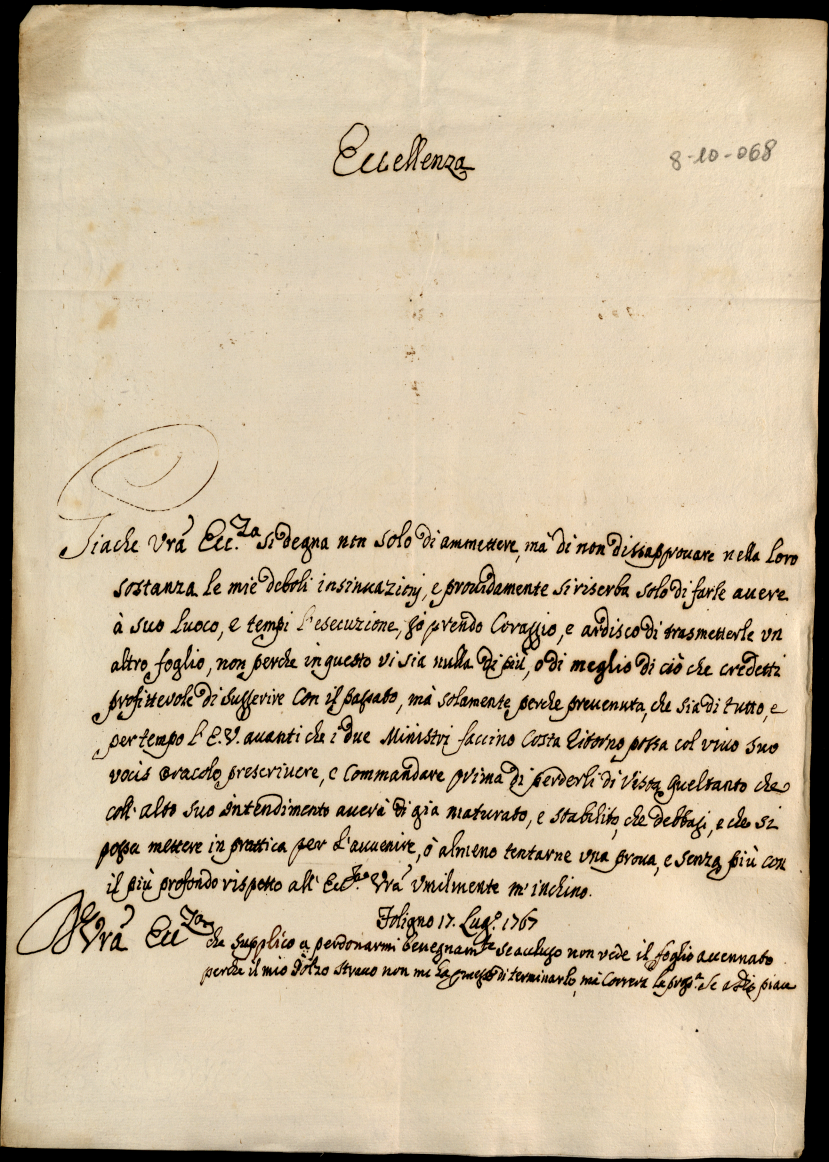 Eccellenza
8-10-068
Giache Vrã Ecc.za si degna non solo di ammettere, mà di non dissapprovare nella loro
sostanza le mie deboli insinuazioni, e providamente si riserba solo di farle avere
à suo luoco, e tempi l'esecuzione, Jo prendo Coraggio, e ardisco di trasmetterle un
altro foglio, non perche in questo vi sia nulla di più, ò di meglio di ciò che credetti
profittevole di suggerire con il passato, mà solamente perche prevenuta, che sia di tutto, e
per tempo l'E.V. avanti che i due Ministri faccino costà ritorno possa col vivo suo
vocis oracolo prescrivere, e commandare prima di perderli di vista queltanto che
coll'alto suo intendimento averà di già maturato, e stabilito, che debbasi, e che si
possa mettere in prattica per l'avvenire, ò almeno tentarne una prova, e senza più con
il più profondo rispetto all'Ecc.za Vrã umilmente m'inchino.
Foligno 17. Lug.o 1767
Di Vrã Ecc.za che supplico a perdonarmi benegnam.te se accluso non vede il foglio accennato
perche il mio stravo non mi ha di terminarlo, mà correrà la a Dio piace